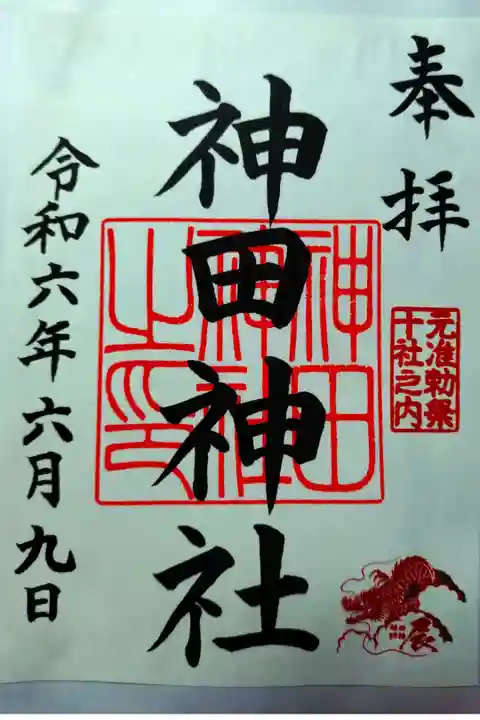 奉拝
元准勅祭
十社之内
辰
神田神社
神田
神社
之印
令和六年六月九日